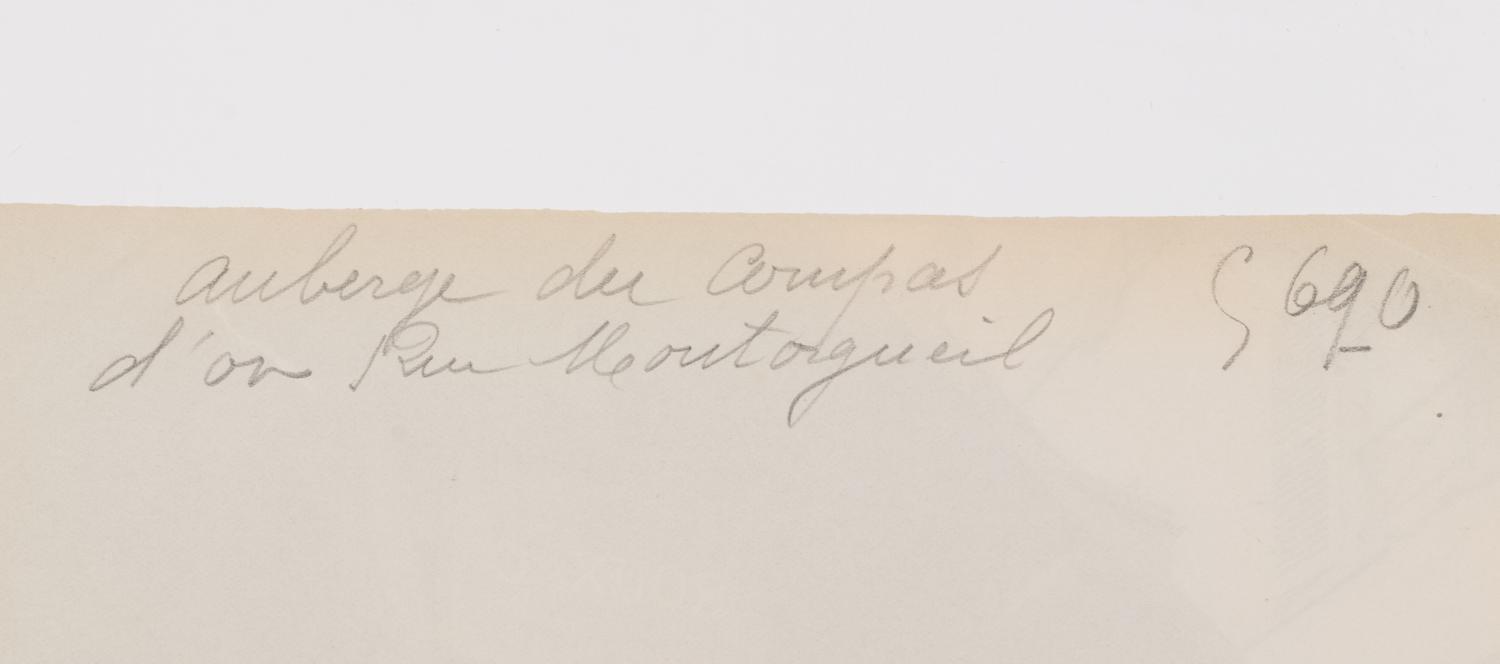 auberge du Compas
d'or Rue Montorgueil
5690